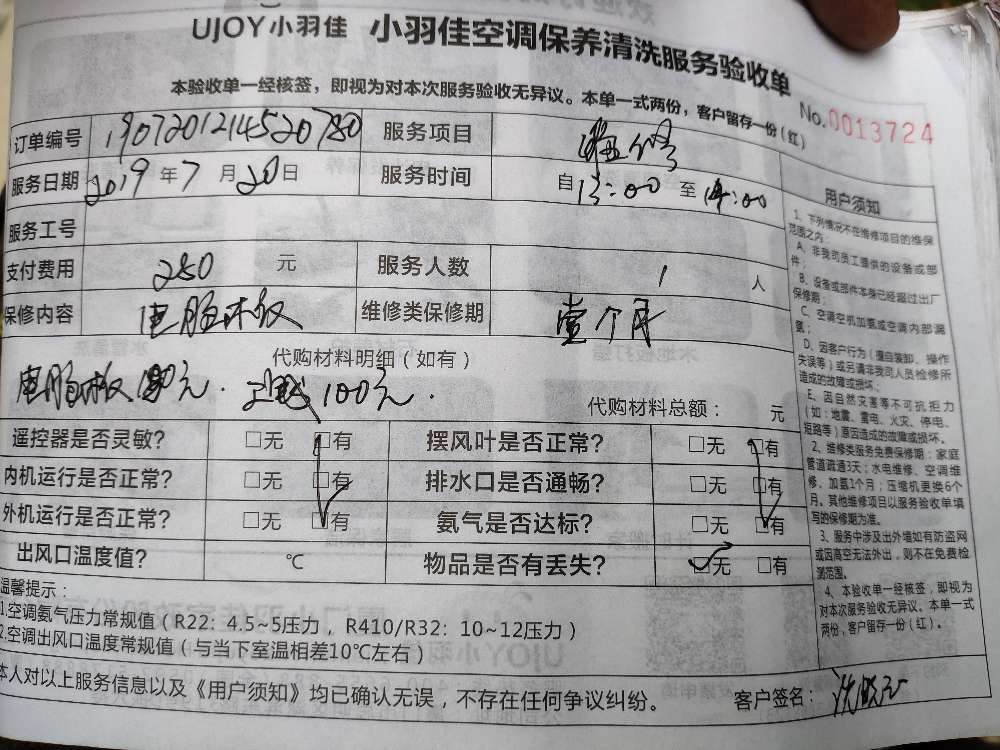 UJOY小羽佳 小羽佳空调保养清洗服务验收单
本验收单一经核签，即视为对本次服务验收无异议。本单一式两份，客户留存一份(红)
No.0013724
订单编号 1907201214520780 服务项目 维修
服务日期 2019年7月20日 服务时间 自13:00至14:00
服务工号
支付费用 280 元 服务人数 1 人
保修内容 电脑板 维修类保修期 壹个月
代购材料明细（如有）
电脑板180元. 100元.
代购材料总额： 元
遥控器是否灵敏? □无 □有 摆风叶是否正常? □无 □有
内机运行是否正常? □无 □有 排水口是否通畅? □无 □有
外机运行是否正常? □无 □有 氨气是否达标? □无 □有
出风口温度值? ℃ 物品是否有丢失? □无 □有
温馨提示：
1.空调氨气压力常规值（R22：4.5~5压力，R410/R32：10~12压力）
2.空调出风口温度常规值（与当下室温相差10℃左右）
本人对以上服务信息以及《用户须知》均已确认无误，不存在任何争议纠纷。 客户签名：
用户须知
1、下列情况不在维修项目的维保
范围之内：
A、非我司员工提供的设备或部
件；
B、设备或部件本身已经超过出厂
保修期；
C、空调空机加氨或空调内部漏
氨；
D、因客户行为（擅自装卸、操作
失误等）或另请非我司人员检修所
造成的故障或损坏；
E、因自然灾害等不可抗拒力
（如：地震、雷电、火灾、停电、
短路等）原因造成的故障或损坏。
2、维修类服务免费保修期：家庭
管道疏通3天；水电维修、空调维
修、加氨1个月；压缩机更换6个
月。其他维修项目以服务验收单填
写的保修期为准。
3、服务中涉及出外墙如有防盗网
或因高空无法外出，则不在免费检
测范围。
4、本验收单一经核签，即视为
对本次服务验收无异议。本单一式
两份，客户留存一份（红）。